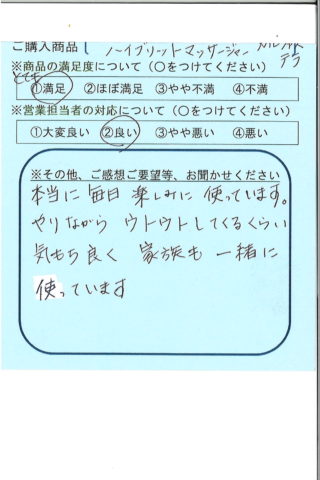 ご購入商品 [ ハイブリットマッサージャー
※商品の満足度について(○をつけてください)
とても
①満足 ②ほぼ満足 ③やや不満 ④不満
※営業担当者の対応について(○をつけてください)
①大変良い ②良い ③やや悪い ④悪い
※その他、ご感想ご要望等、お聞かせください
本当に毎日楽しみに使っています。
やりながらウトウトしてくるくらい
気もち良く 家族も一緒に
使っています